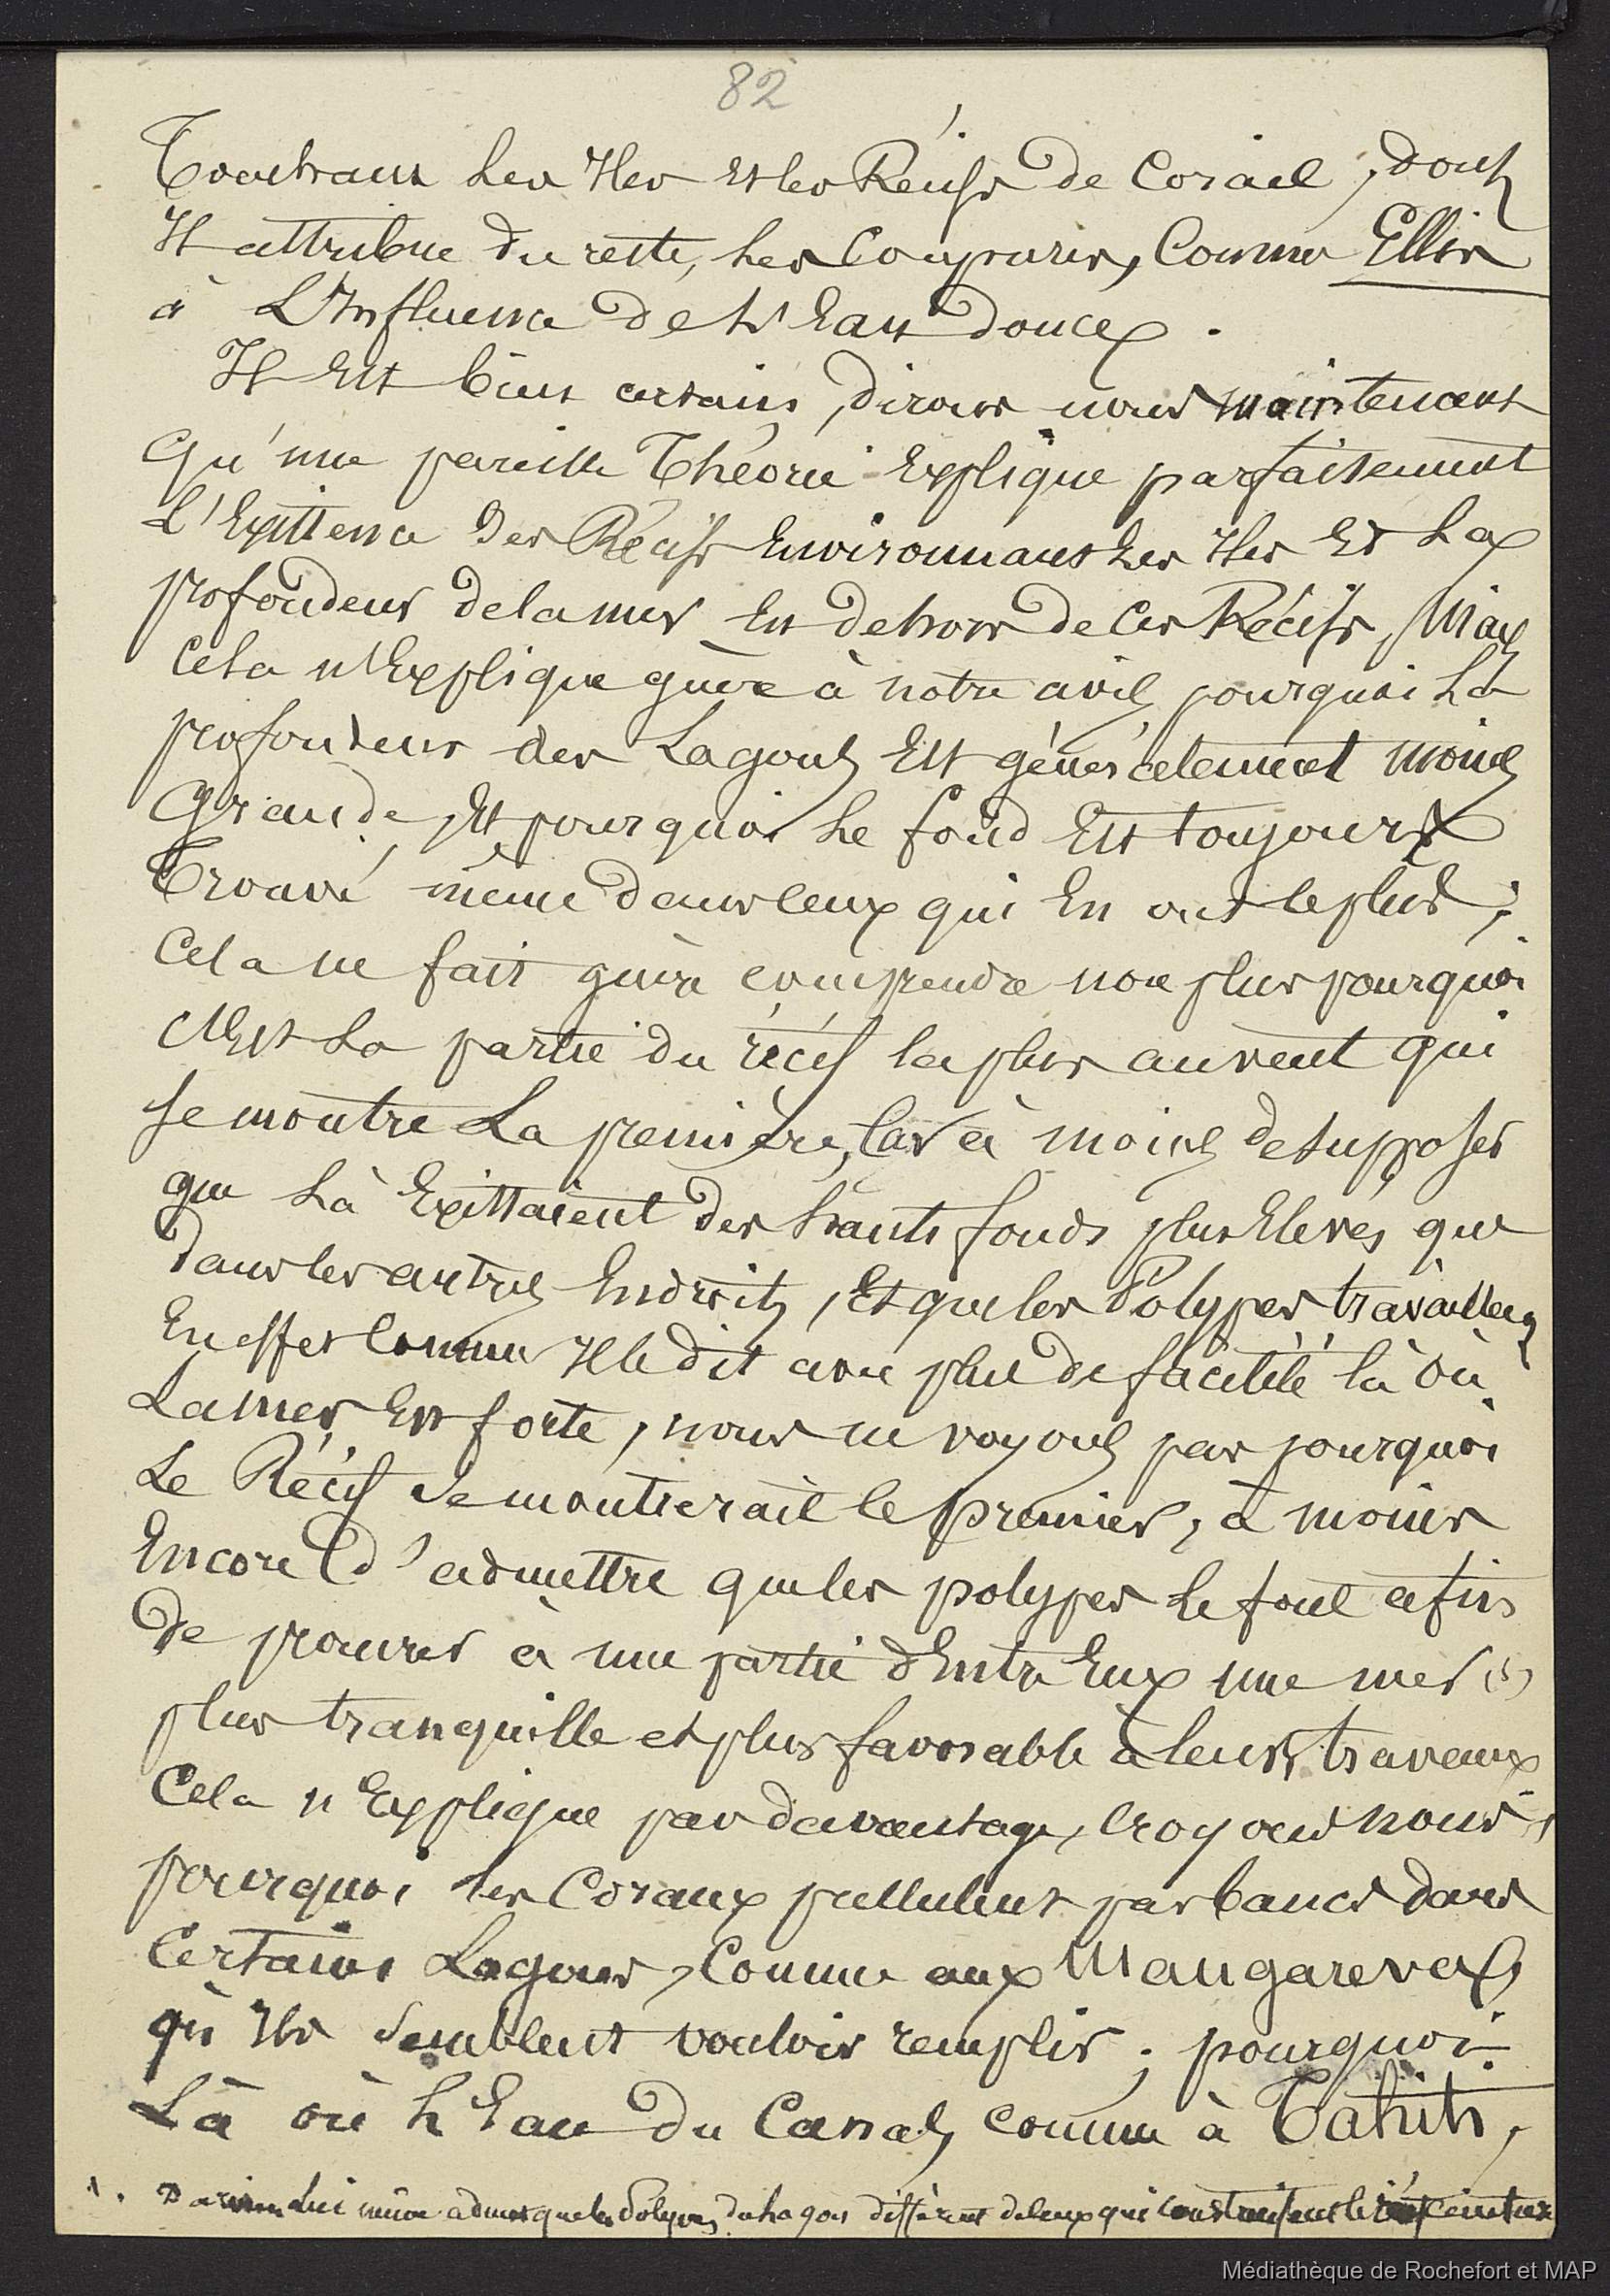 82
Touchant les Iles et les Récifs de Corail, dont
Il attribue du reste, les Coupures, Comme Ellis
à L'Influence de L'Eau douce.
Il Est bien certain, dirons nous maintenant
Qu'une pareille Théorie Explique parfaitement
L'Existence des Récifs Environnant Les Iles Et La
profondeur de la mer En dehors de Ces Récifs, Mais
Cela n'Explique guère à notre avis pourquoi La
profondeur des Lagons Est généralement moins
Grande, Et pourquoi Le fond Est toujours
Trouvé même dans Ceux qui En ont le plus;
Cela ne fait guère comprendre non plus pourquoi
C'Est La partie du récif la plus au vent qui
se montre La première, Car à moins de supposer
que Là Existaient des hauts fonds plus Elevés que
dans les autres Endroits, Et que les Polypes travaillent
En effet Comme Il le dit avec plus de facilité là où
La mer Est forte, nous ne voyons pas pourquoi
Le Récif se montrerait le premier, à moins
Encore d'admettre que les polypes Le font afin
de procurer à une partie d'Entre Eux une mer (1)
plus tranquille et plus favorable à leurs travaux
Cela n'Explique pas davantage, Croyons nous,
pourquoi les Coraux pullulent par bancs dans
Certains Lagons, Comme aux Mangareva,
qu'Ils semblent vouloir remplir; pourquoi
Là où L'Eau du Canal, comme à Tahiti,
1. Darwin Lui même admet que les Polypes du Lagon diffèrent de Ceux qui Construisent le récif ceinture
Médiathèque de Rochefort et MAP